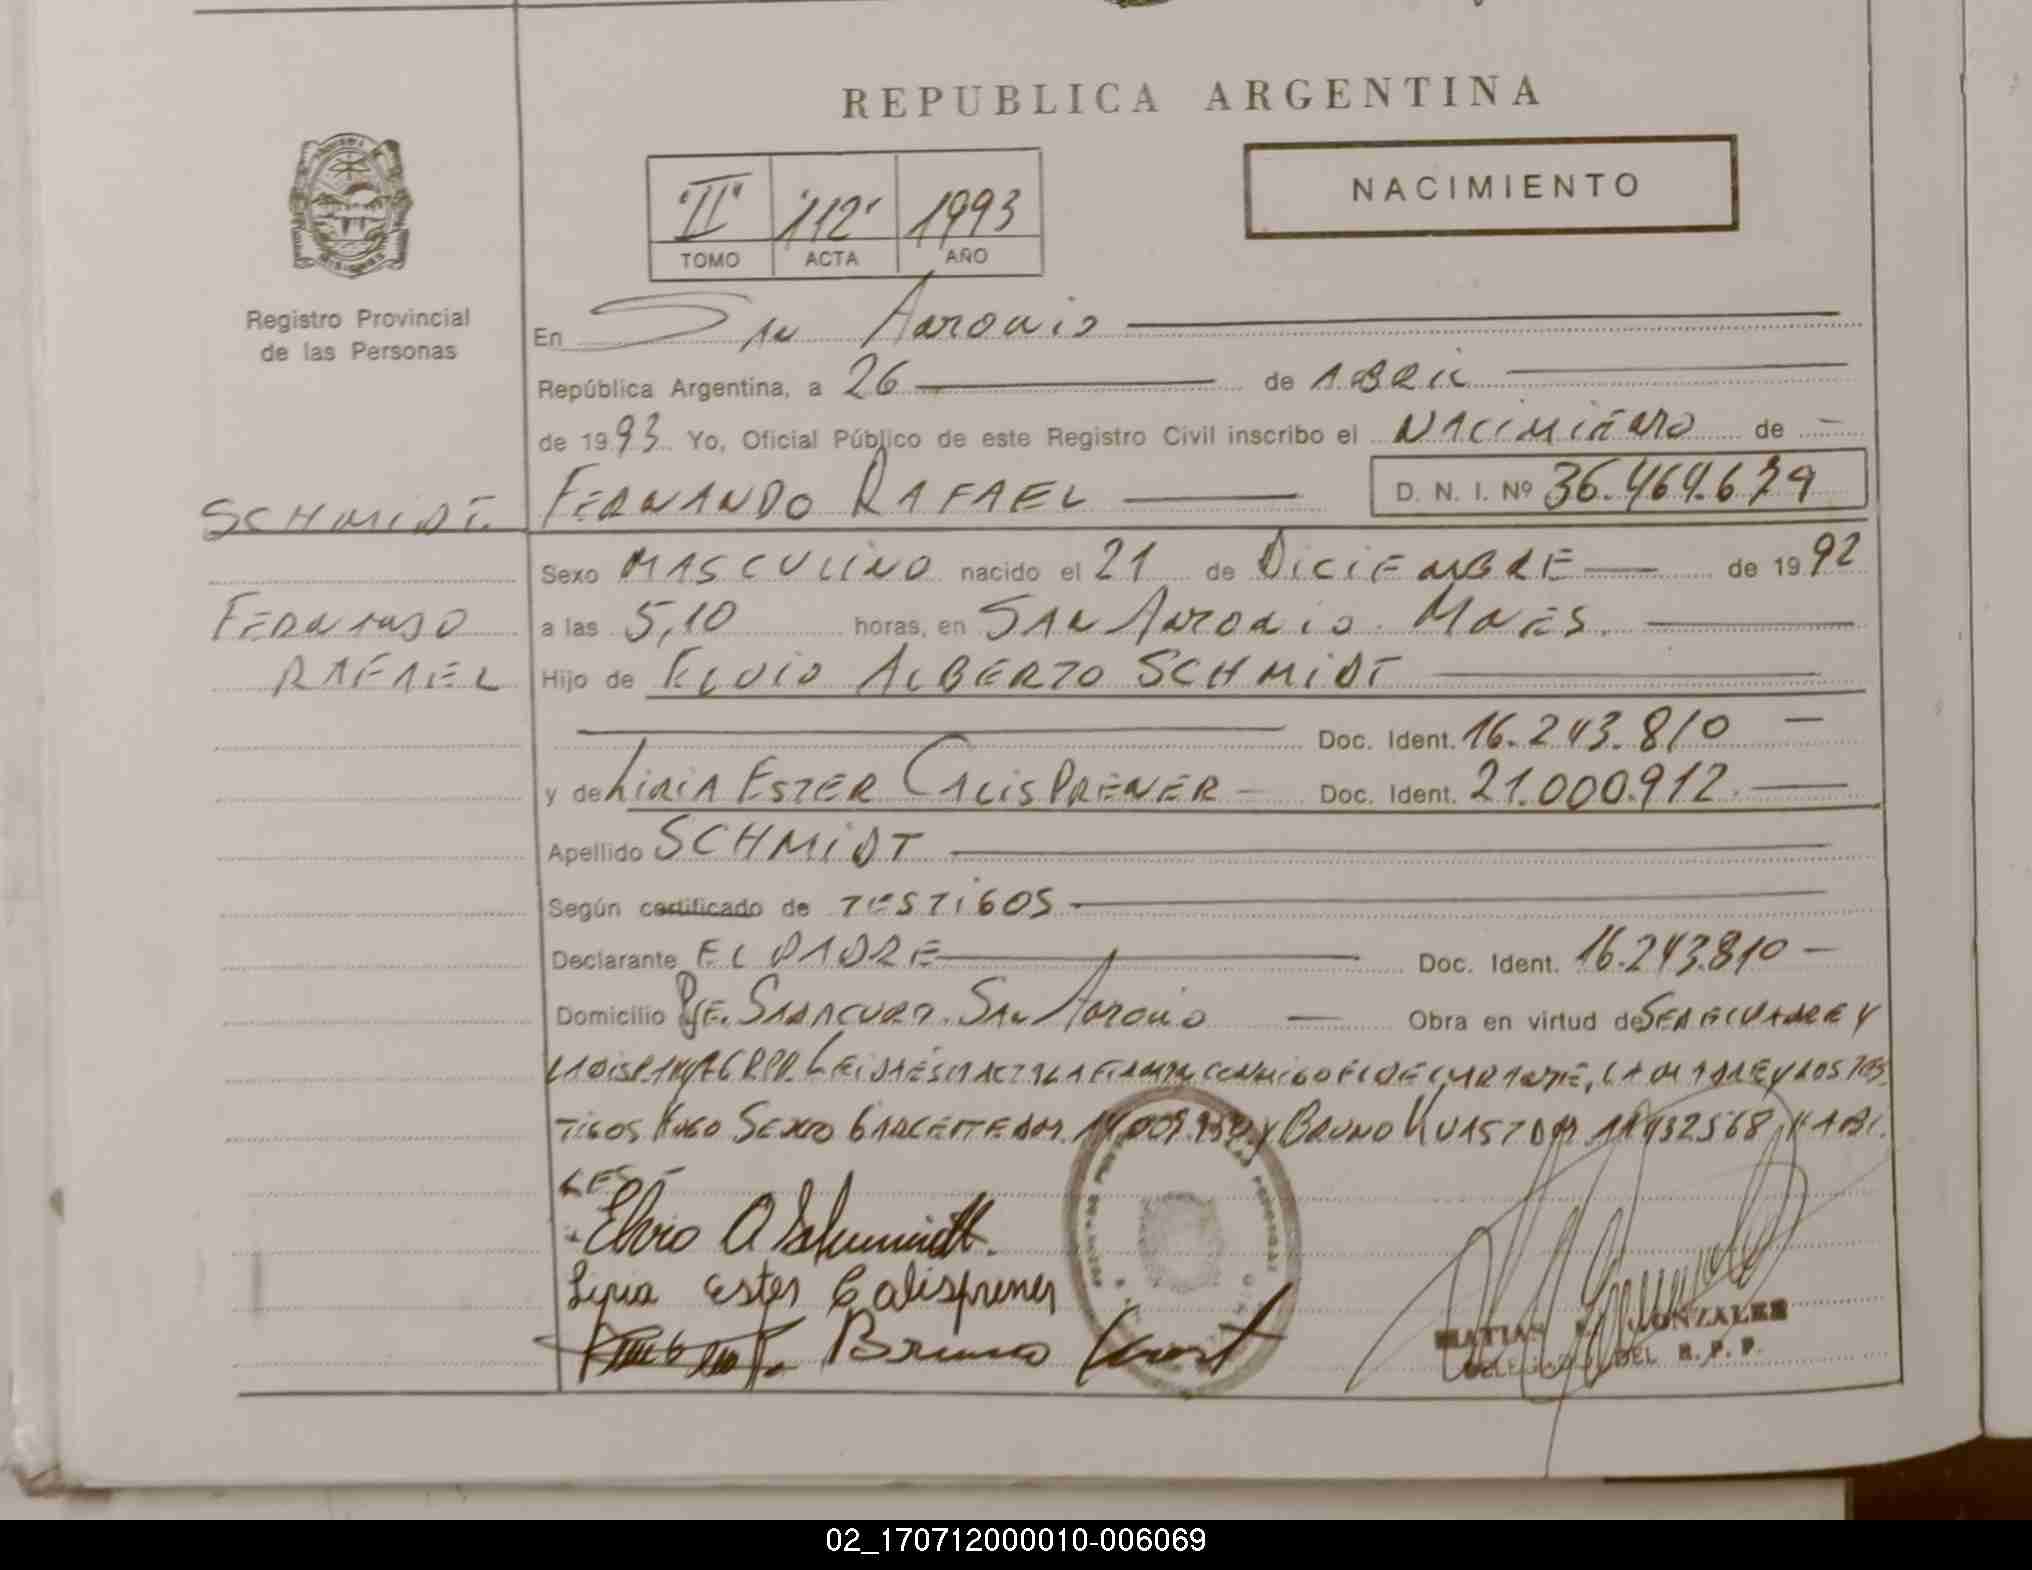 REPUBLICA ARGENTINA
NACIMIENTO
"II" 112 1993
TOMO ACTA AÑO
Registro Provincial
de las Personas
En San Antonio
República Argentina, a 26 de ABRIL
de 1993 Yo, Oficial Público de este Registro Civil inscribo el NACIMIENTO de
SCHMIDT. FERNANDO RAFAEL D. N. I. Nº 36.464.679
Sexo MASCULINO nacido el 21 de DICIEMBRE de 1992
FERNANDO a las 5,10 horas, en SAN ANTONIO. MNES.
RAFAEL Hijo de ELVIO ALBERTO SCHMIDT
Doc. Ident. 16.243.810
y de LIRIA ESTER CALISPRENER Doc. Ident. 21.000.912.
Apellido SCHMIDT
Según certificado de TESTIGOS
Declarante EL PADRE Doc. Ident. 16.243.810
Domicilio Pje. SARACURA. SAN Antonio Obra en virtud de SER EL PADRE Y
LEIDA ESTA ACTA LA FIRMAN CONMIGO EL DECLARANTE, LA MADRE Y LOS TES
TIGOS HUGO SEXTO Y BRUNO KUAST HABI.
LES
Elvio A Schmidt.
Liria Ester Calisprener
Bruno Kuast
MATIAS GONZALEZ
DELEGADO DEL R. P. P.
02_170712000010-006069